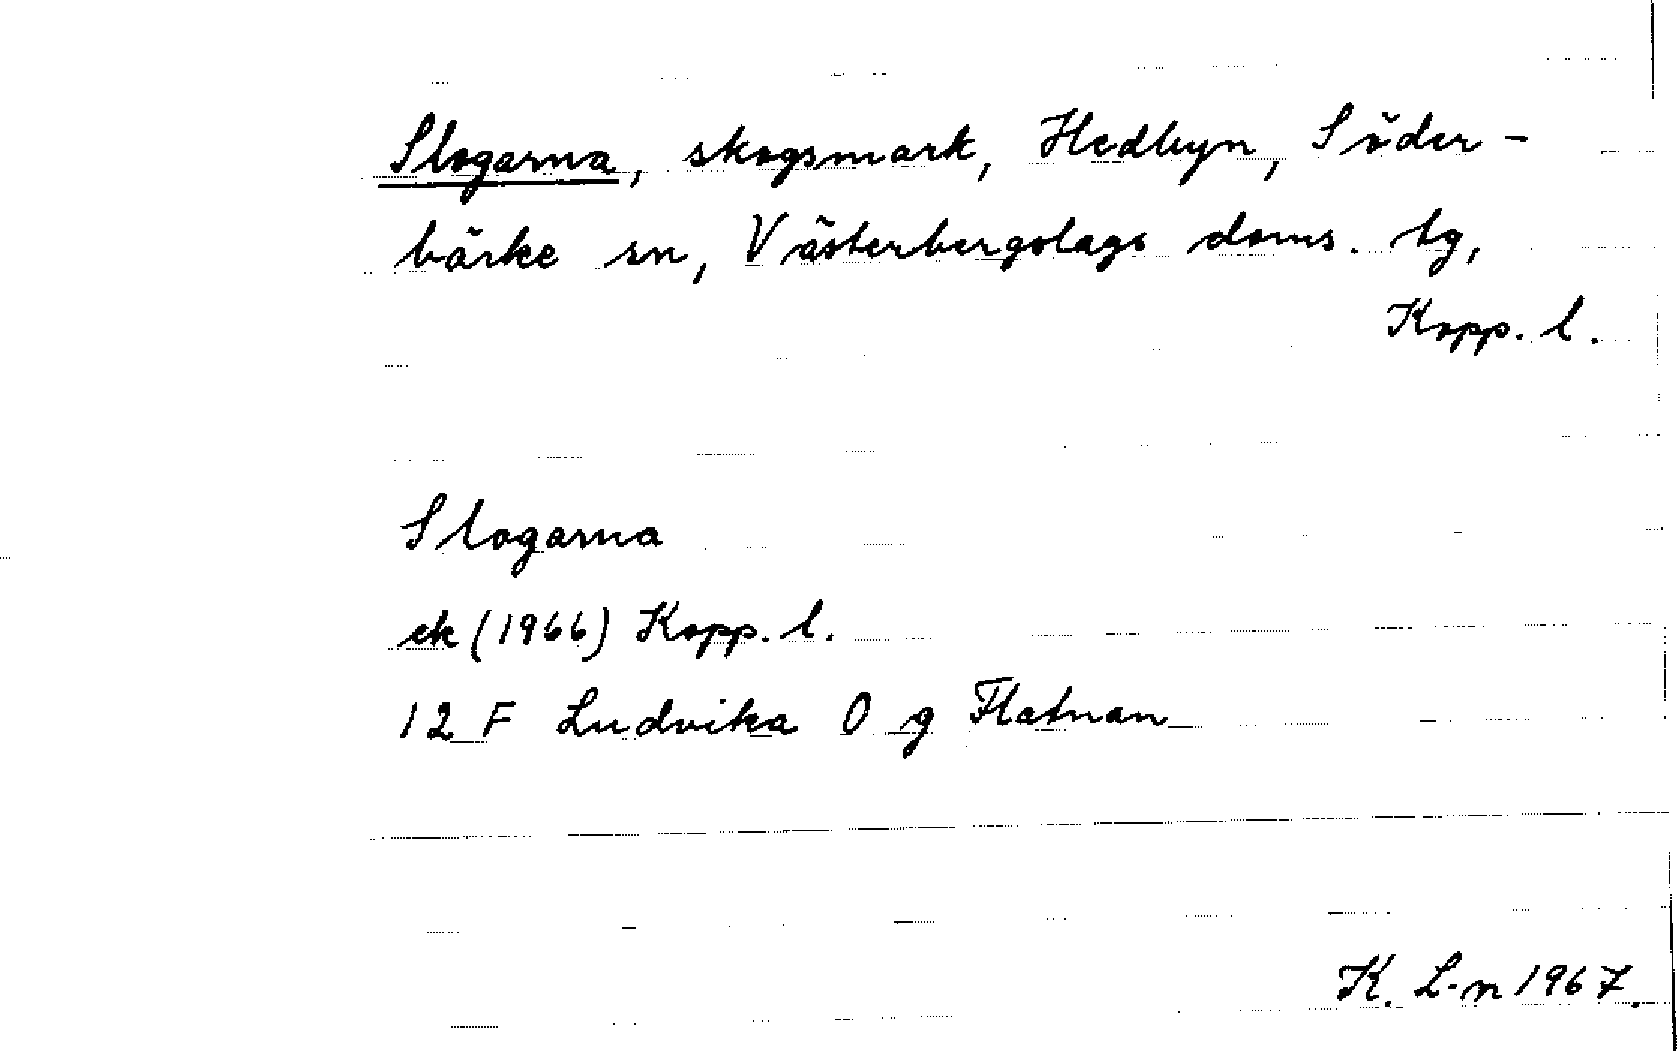 Slogarna, skogsmark, Hedbyn, Söder-
bärke sn, Västerbergslags doms. tg,
Kopp. l.
Slogarna
ek (1966) Kopp. l.
12 F Ludvika 0 g Flatnan
K. L-n 1967.